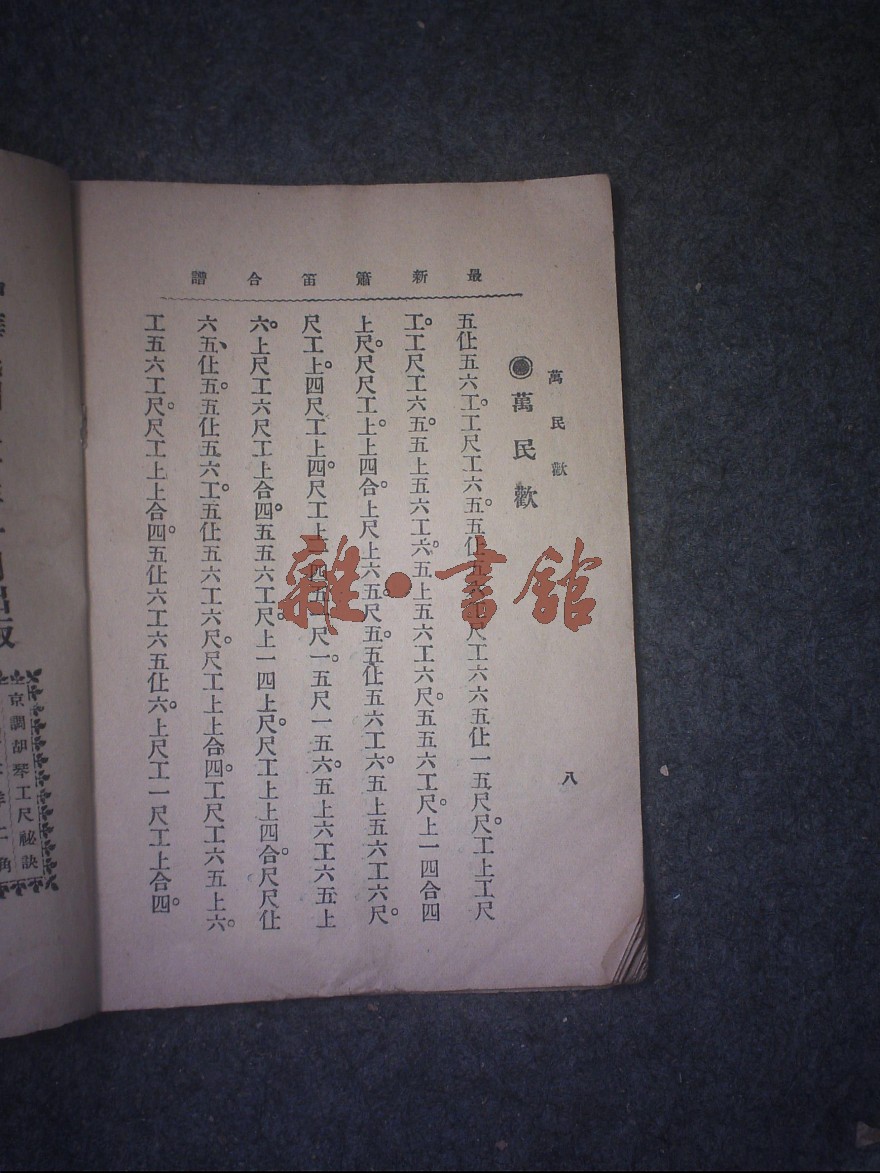 最新簫笛合譜
萬民歡
八
萬民歡
五仩五六工。工尺工六五。五仩
尺工六六五仩一五尺。尺工上工尺
工。工尺工六五。五上五六工六。五上五六工六尺。五五六工尺。上一四合四
上尺。尺尺工上上四合。上尺上六五。尺五。五仩五六工六。五上五六工六尺。
尺工上。四尺工上四。尺工上
尺一。五尺一五六。五上六工六五上
六。上尺工六尺工上合四。五五六工尺。上一四上尺。尺工上上四合。尺尺仩
六五、仩五。五仩五六工。五仩五六工六尺。尺工上上合四。工尺工六五上六。
工五六工尺。尺工上上合四。五仩六工六五仩六。上尺工一尺工上合四。
京調胡琴工尺祕訣
雜·書館